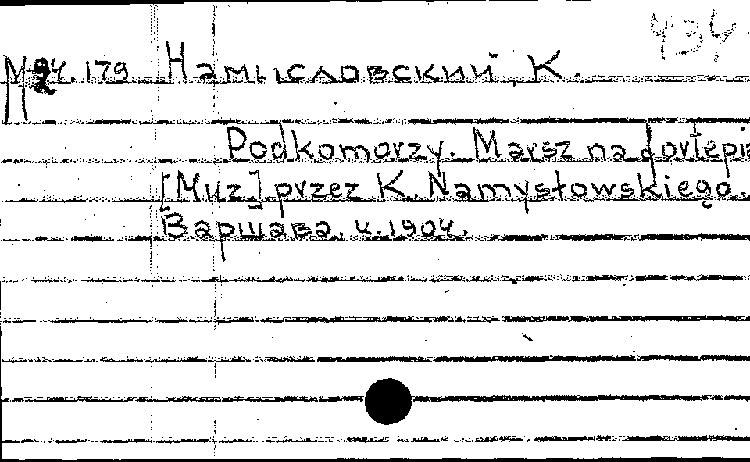 434
М 94.179 Намысловский, К.
2
Podkomorzy. Marsz na fortepia
[Muz.] przez K. Namysłowskiego.
Варшава. ц. 1904.